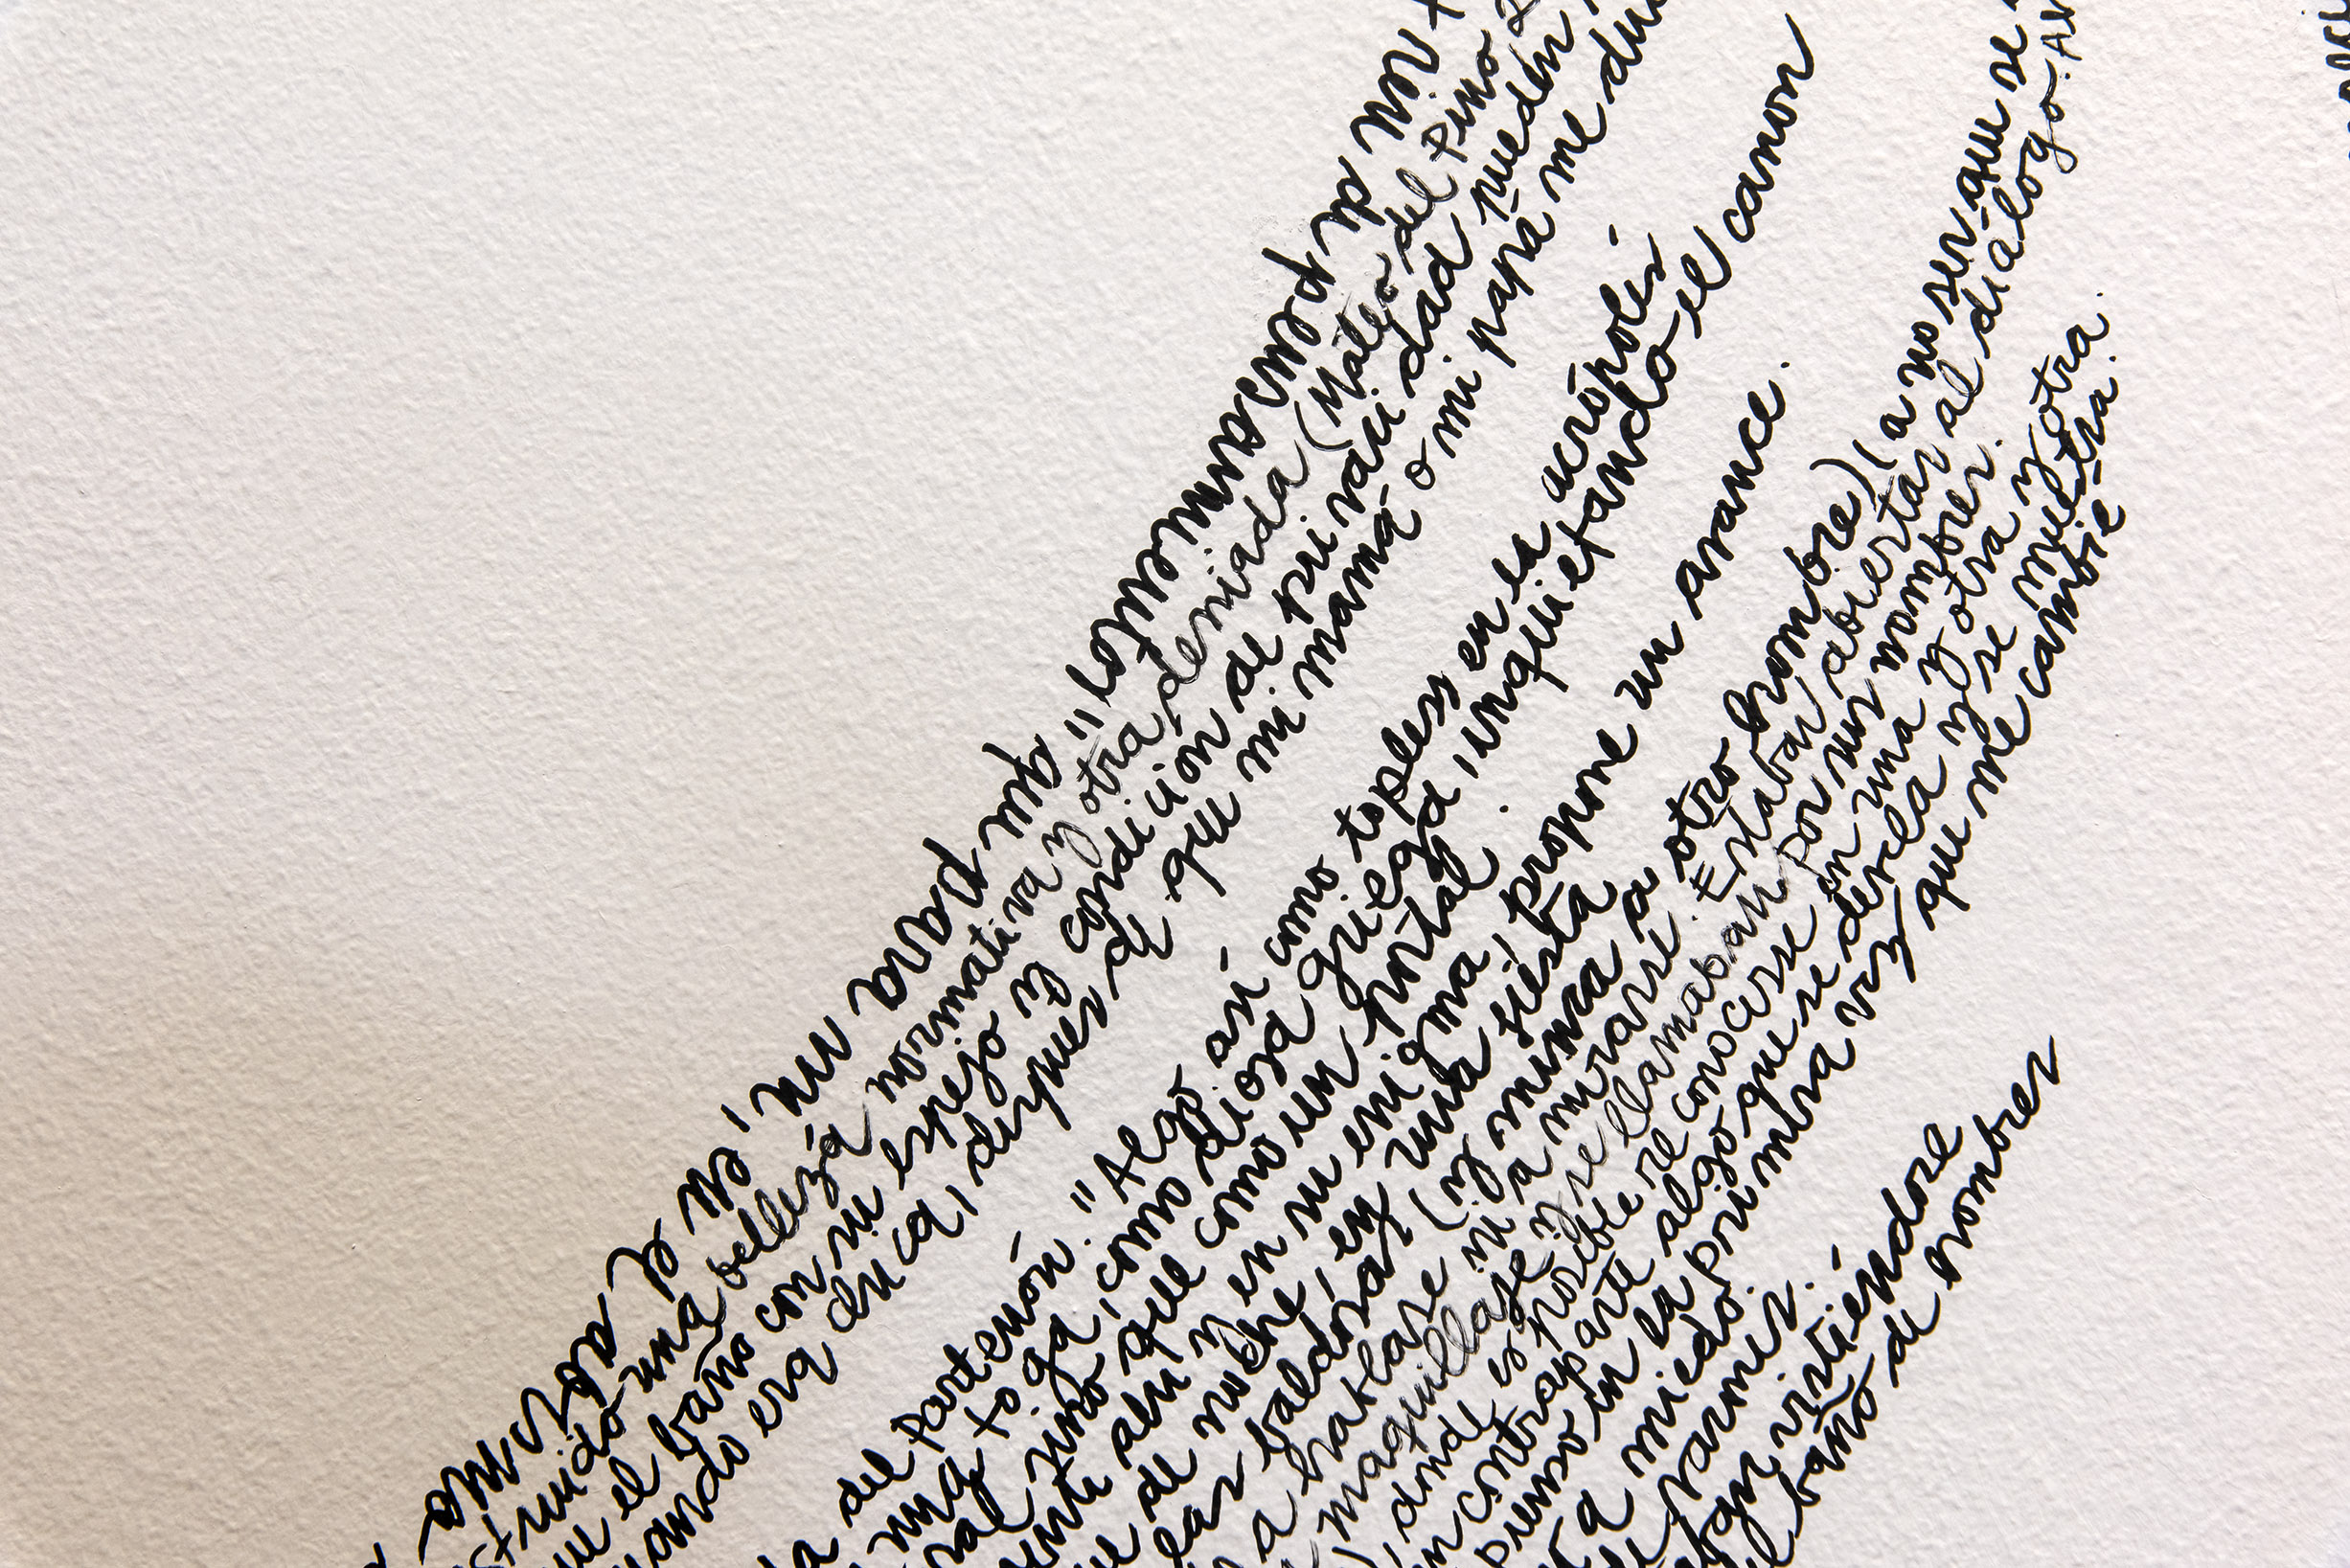 mismo abre el, en mi, para que "los pensamientos de su
struido una belleza normativa y otra demiada (Malena del Pino
ue el baño con su espejo es condición de privacidad pueden
uando era chica, después de que mi mamá o mi papá me du
a del Partenón. "Algo así como topless en la acrópolis
una toga, como diosa griega, inquietando el canon
ral sino que como un portal.
nte ahí y en su enigma, propone un avance.
ue de noche, en una siesta
lar baldosas (y nunca a otro hombre) (a no ser que se
a hablarse ni a mirarse. Estaban abiertas al diálogo. Al
maquillaje y se llamaban por sus nombres.
) donde es posible re conocerse en una y otra y otra.
n contraparte algo que se devela y se muestra.
pienso en la primera vez que me cambié
a miedo.
varones.
gan vistiéndose
l baño de hombres